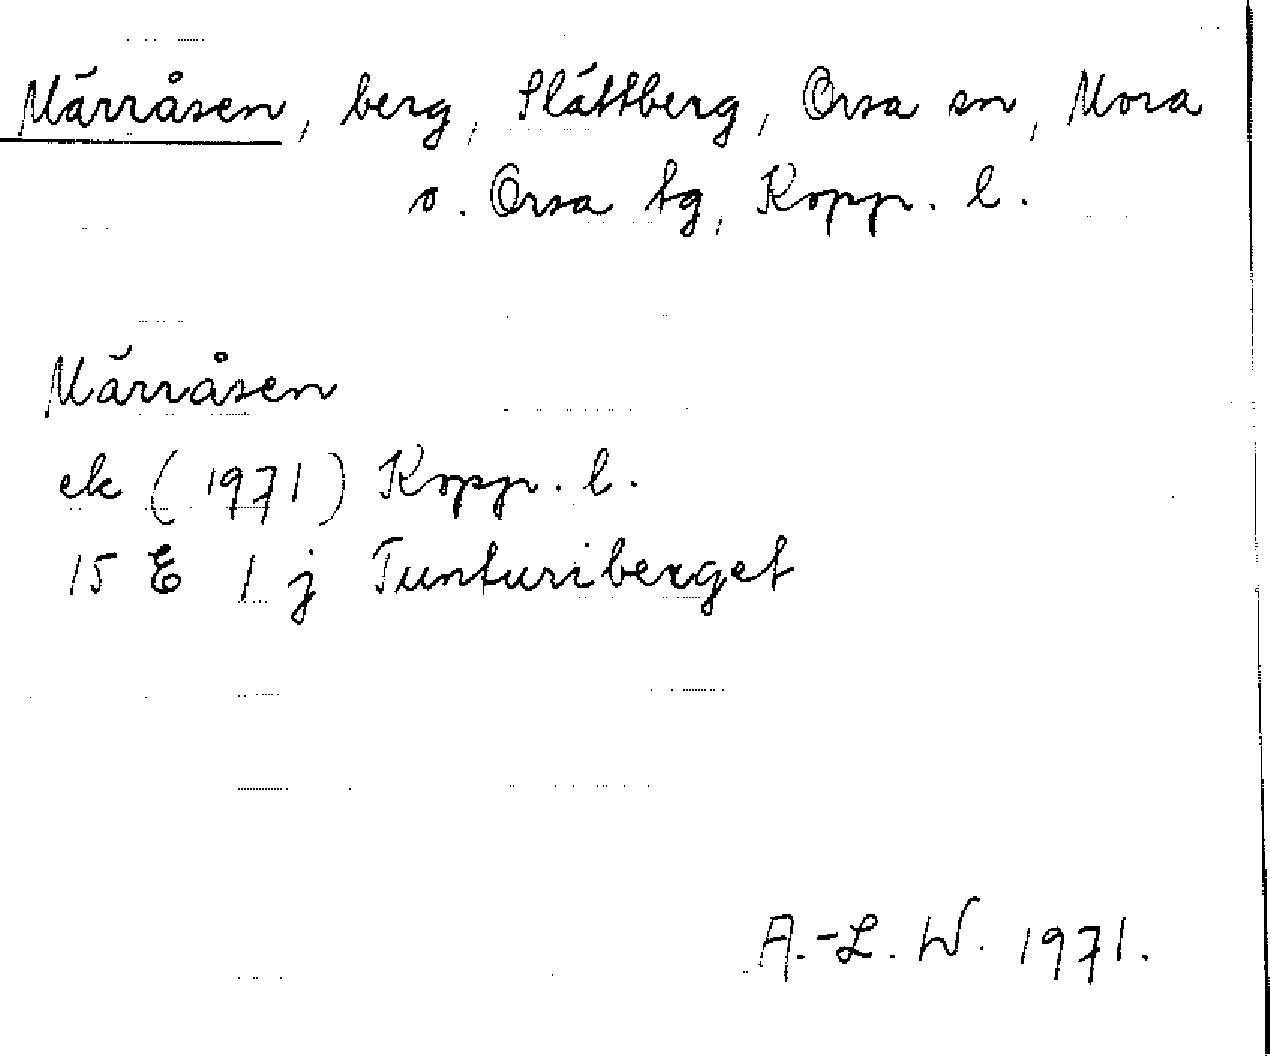 Märråsen, berg, Slättberg, Orsa sn, Mora
o. Orsa tg, Kopp. l.
Märråsen
ek (1971) Kopp. l.
15 E 1 j Tunturiberget
A.-L. W. 1971.